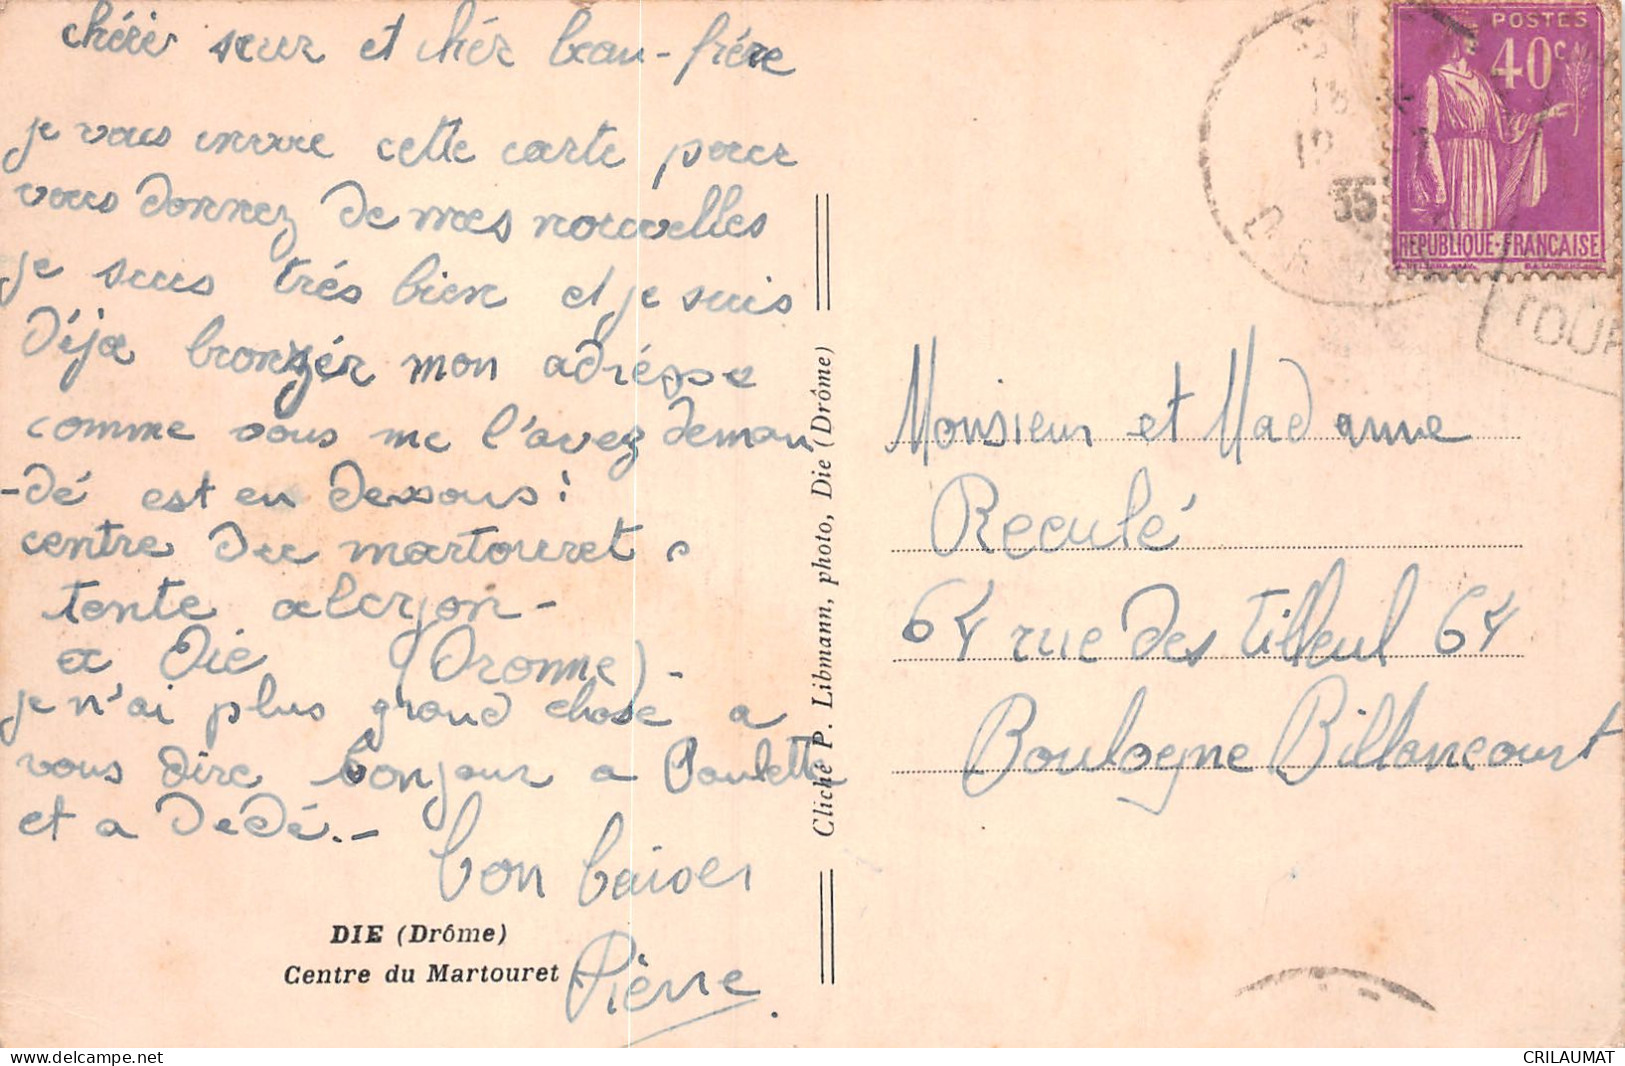 chérie sœur et chér beau-frére
je vous envoie cette carte pour
vous donnez de mes nouvelles
je suis trés bien et je suis
déja bronzér mon adrésse
comme vous me l'avez deman
-dé est en dessous:
centre du martouret.
tente alcyon-
a Die (Dromme)-
je n'ai plus grand chose a
vous dire bonjour a Paulette
et a Dédé.-
bon baiser
Pièrre.
DIE (Drôme)
Centre du Martouret
Cliché P. Libmann, photo, Die (Drôme)
POSTES
40c
REPUBLIQUE-FRANCAISE
35
Monsieur et Madame
Reculé
64 rue des Tilleul 64
Boulogne Billancourt
CRILAUMAT